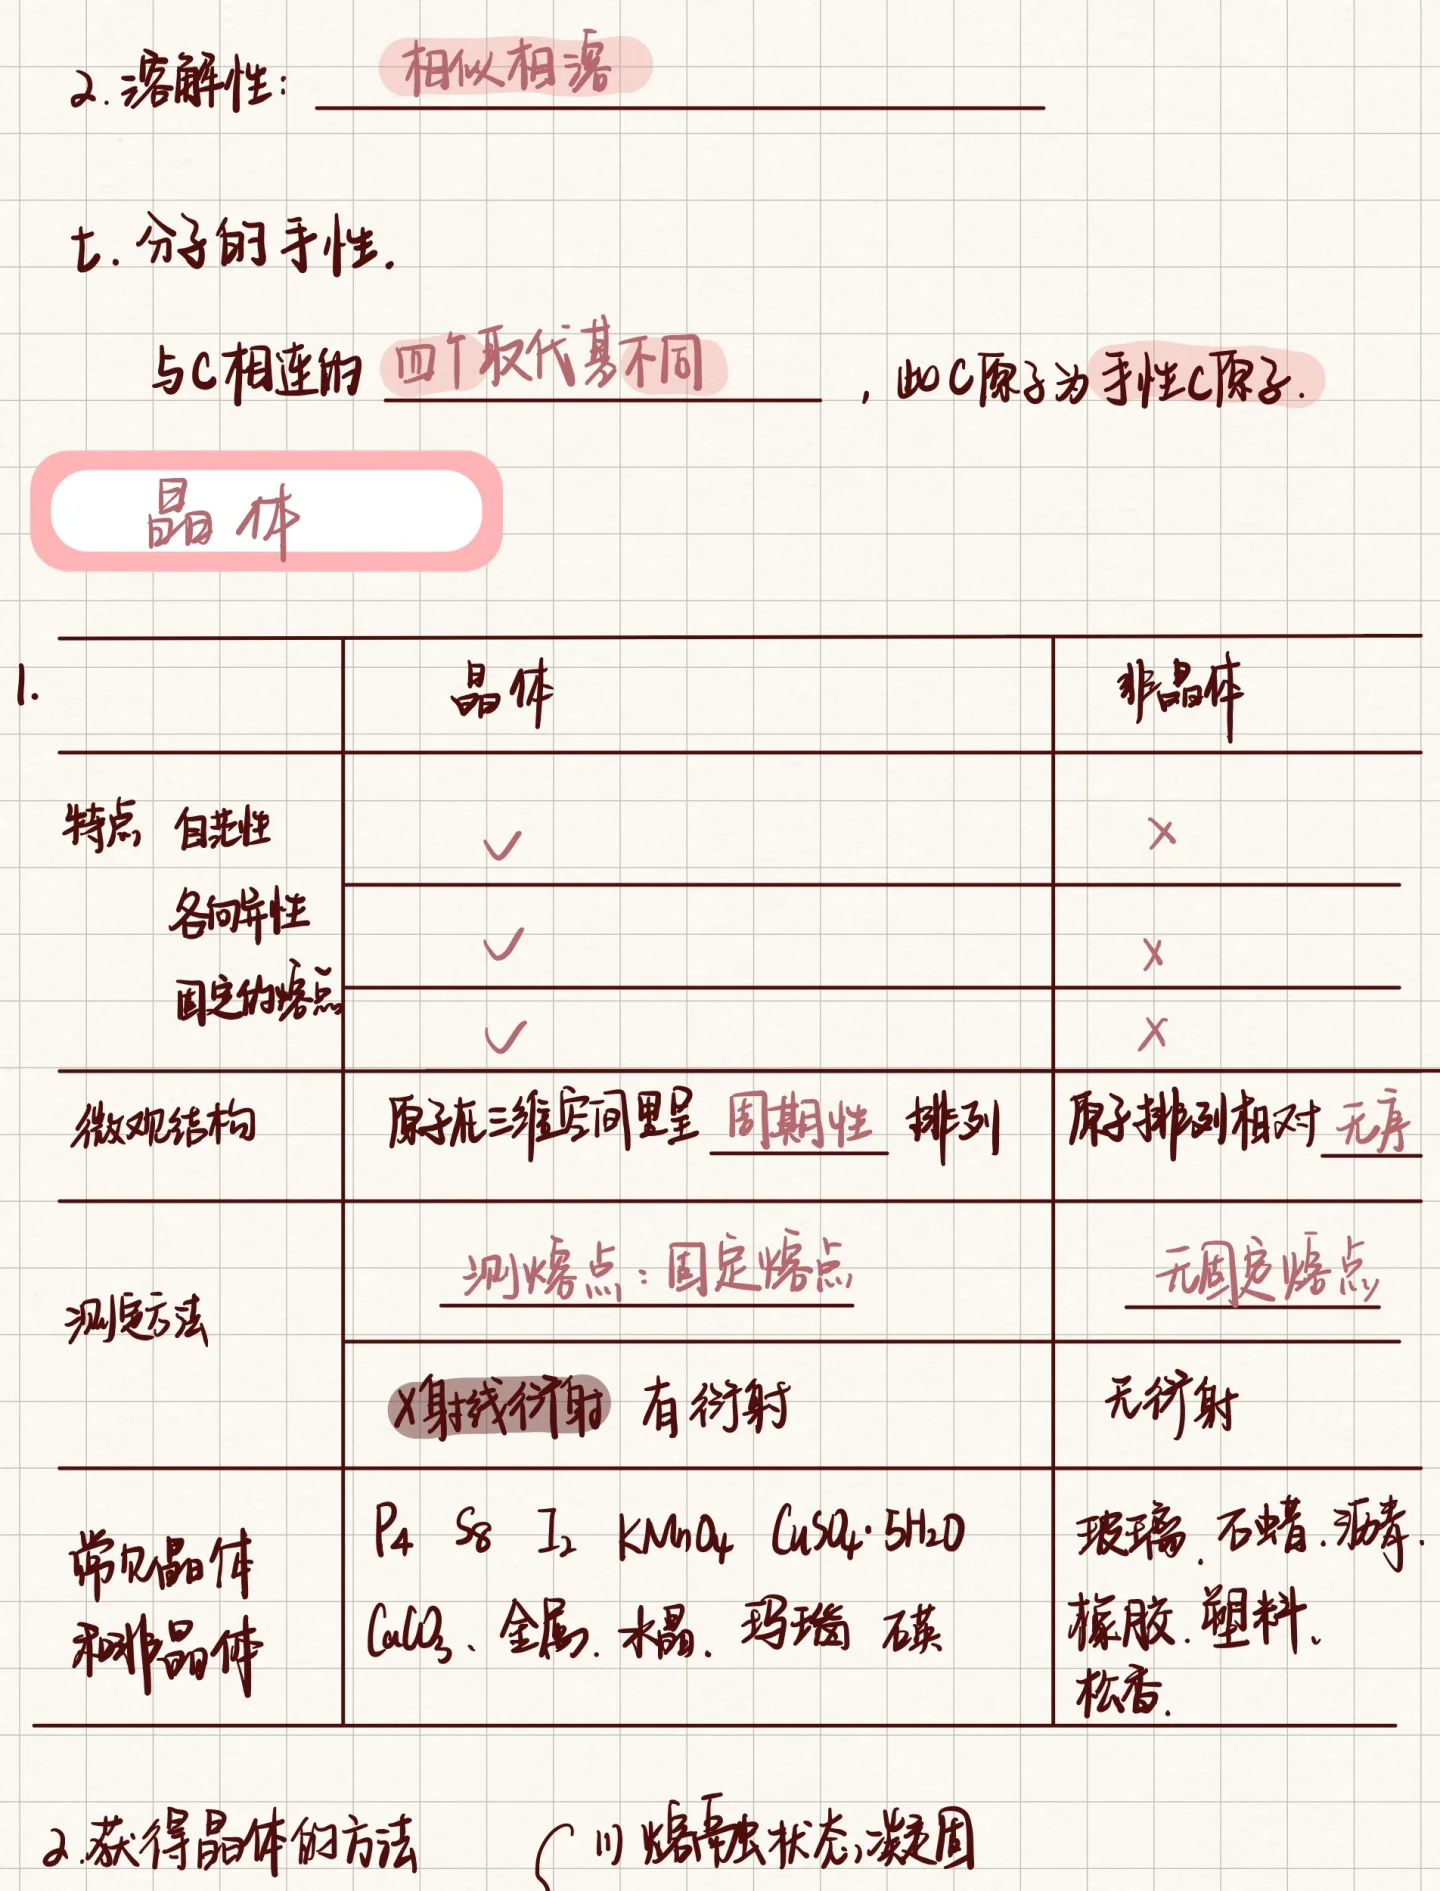 2.溶解性： 相似相溶
七.分子的手性.
与C相连的 四个取代基不同 ，此C原子为手性C原子.
晶体
1. 晶体 非晶体
特点 自范性 ✓ ×
各向异性 ✓ ×
固定的熔点 ✓ ×
微观结构 原子在三维空间里呈 周期性 排列 原子排列相对 无序
测熔点：固定熔点 无固定熔点
测定方法
X射线衍射 有衍射 无衍射
P₄ S₈ I₂ KMnO₄ CuSO₄·5H₂O 玻璃、石蜡、沥青、
常见晶体
CaCO₃、金属、水晶、玛瑙 石英 橡胶、塑料、
和非晶体
松香.
2.获得晶体的方法 (1) 熔融状态，凝固